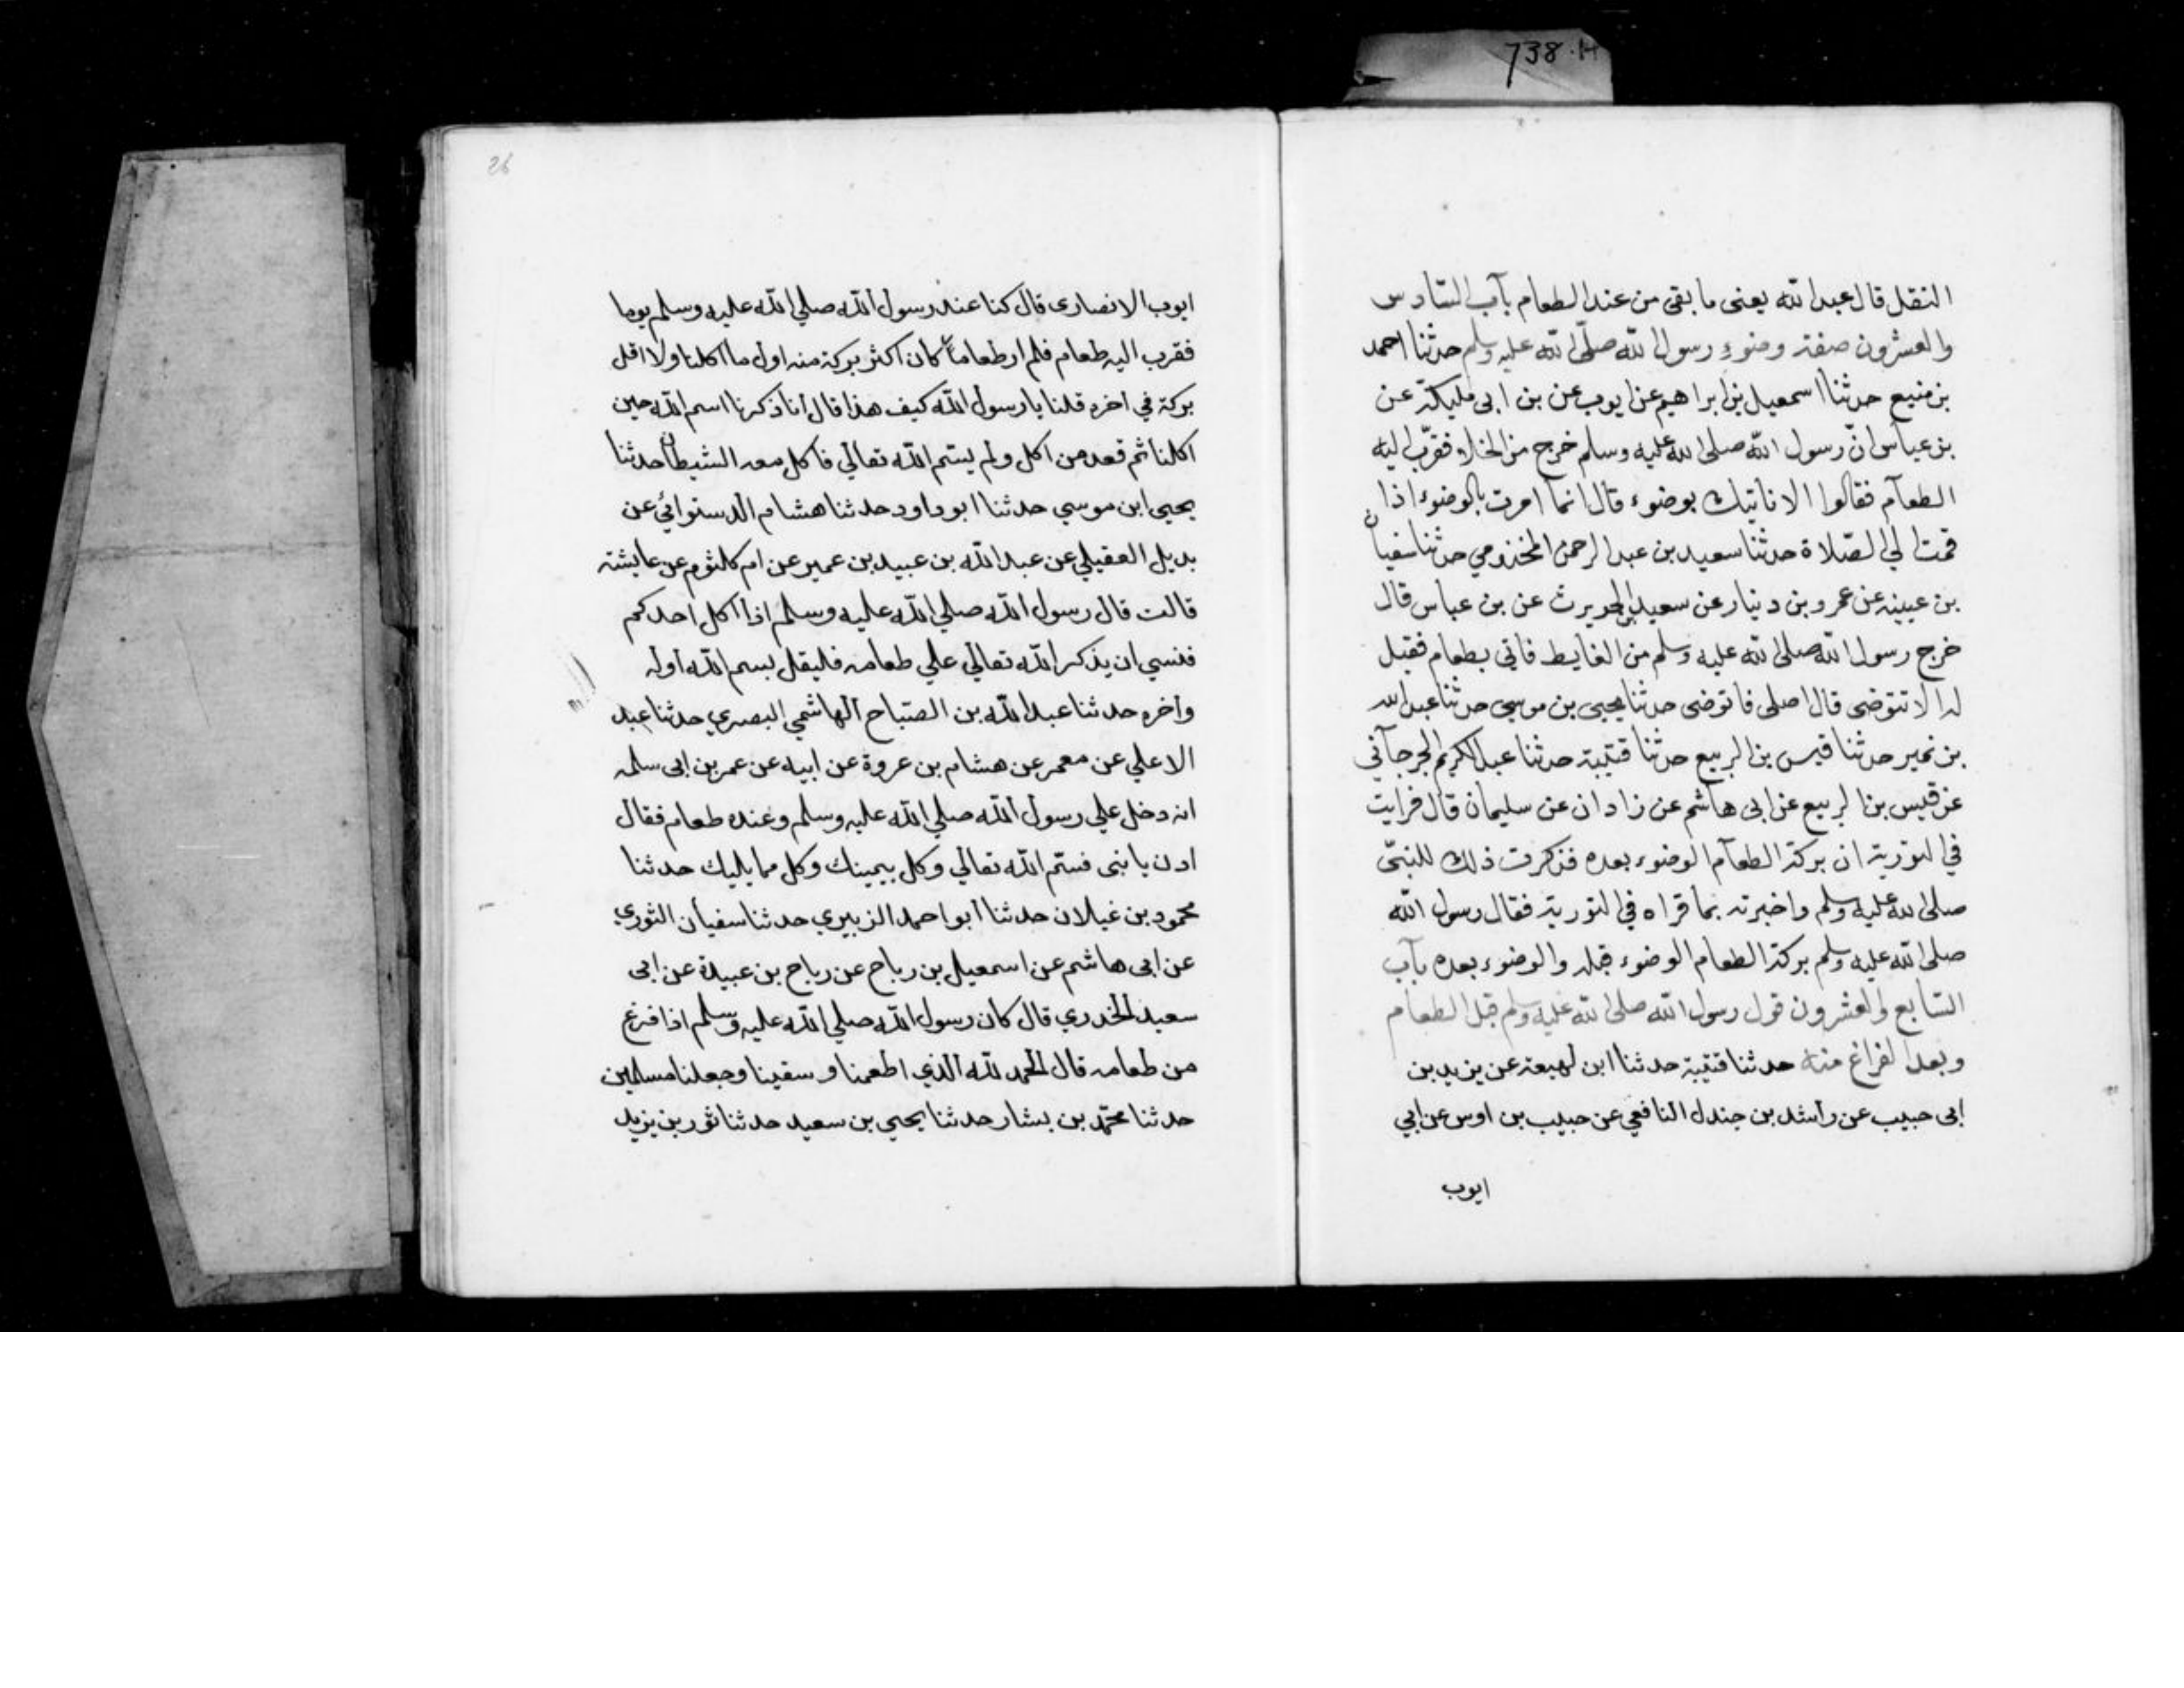 738.H
النقل قال عبد الله يعنى ما بقى من عند الطعام بآب السّادس
والعشرون صفة وضوءِ رسول اللّه صلّى اللّه عليه وسلم حدثنا احمد
بن منيع حدثنا اسمعيل بن ابراهيم عن ايوب عن بن ابى مليكة عن
بن عباس انّ رسول اللّه صلى الله عليه وسلم خرج من الخلاء فقرّب اليه
الطعآم فقالوا الا ناتيك بوضوء قال انمآ امرت بالوضوء اذا
قمت الي الصّلاة حدثنا سعيد بن عبد الرحمن المخزومي حدثنا سفيان
بن عيينه عن عمرو بن دينار عن سعيد بن الحويرث عن بن عباس قال
خرج رسول اللّه صلى اللّه عليه وسلم من الغايط فاتي بطعام فقيل
له الا تتوضى قال اصلى فاتوضى حدثنا يحيى بن موسى حدثنا عبد الله
بن نمير حدثنا قيس بن الربيع حدثنا قتيبة حدثنا عبد الكريم الجرجآني
عن قيس بن الربيع عن ابى هاشم عن زادان عن سليمان قال قرايت
في التورية ان بركة الطعآم الوضوء بعده فذكرت ذلك للنبىّ
صلى الله عليه وسلم واخبرته بما قراه في التورية فقال رسول اللّه
صلى اللّه عليه وسلم بركة الطعام الوضوء قبله والوضوء بعده بآب
السّابع والعشرون قول رسول اللّه صلى اللّه عليه وسلم قبل الطعام
وبعد الفراغ منه حدثنا قتيبة حدثنا ابن لهيعة عن يزيد بن
ابى حبيب عن راشد بن جندل النافعي عن حبيب بن اوس عن ابي
ايوب
26
ايوب الانصارى قال كنا عند رسول اللّه صلي اللّه عليه وسلم يوما
فقرب اليه طعام فلم ار طعاماً كان اكثر بركة منه اول ما اكلنا ولا اقل
بركة في اخره قلنا يا رسول اللّه كيف هذا قال انا ذكرنا اسم اللّه حين
اكلنا ثم قعد من اكل ولم يسّم اللّه تعالي فاكل معه الشيطان حدثنا
يحيى ابن موسي حدثنا ابو داود حدثنا هشام الدستوائي عن
بديل العقيلي عن عبد اللّه بن عبيد بن عمير عن ام كلثوم عن عايشته
قالت قال رسول اللّه صلي اللّه عليه وسلم اذا اكل احدكم
فنسي ان يذكر اللّه تعالي علي طعامه فليقل بسم اللّه اوله
واخره حدثنا عبد اللّه بن الصّباح الهاشمي البصري حدثنا عبد
الاعلي عن معمر عن هشام بن عروة عن ابيه عن عمر بن ابى سلمه
انه دخل علي رسول اللّه صلي اللّه عليه وسلم وعنده طعام فقال
ادن يا بنى فسّم اللّه تعالي وكل بيمينك وكل مما يليك حدثنا
محمود بن غيلان حدثنا ابو احمد الزبيري حدثنا سفيان الثوري
عن ابى هاشم عن اسمعيل بن رباح عن رباح بن عبيدة عن ابى
سعيد الخدري قال كان رسول اللّه صلي اللّه عليه وسلم اذا فرغ
من طعامه قال الحمد للّه الذي اطعمنا و سقينا وجعلنا مسلمين
حدثنا محمّد بن بشار حدثنا يحيي بن سعيد حدثنا ثور بن يزيد